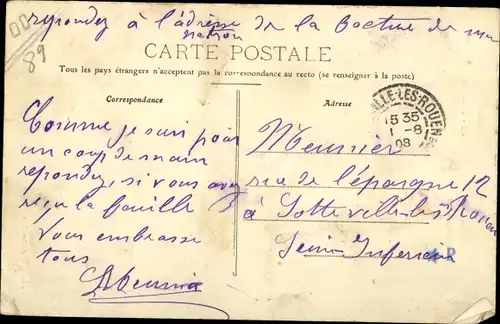 repondez à l'adresse de la
nation
CARTE POSTALE
Tous les pays étrangers n'acceptent pas la correspondance au recto (se renseigner à la poste)
Correspondance
Adresse
89
LLE-LES-ROUEN
15 35
1 -8
08
Comme je suis pour
un coup de main
repondez, si vous avez
reçu la
Vous embrasse
tous
Meunier
Meunier
rue de l'épargne 12
à Sotteville-les-Rouen
Seine Inferieure
R